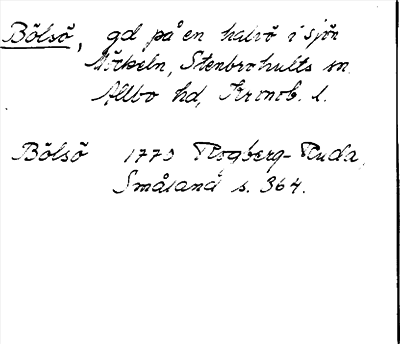 Bölsö, gd på en halvö i sjön
Möckeln, Stenbrohults sn.
Allbo hd, Kronob. l.
Bölsö 1773 Rogberg-Ruda,
Småland s. 364.